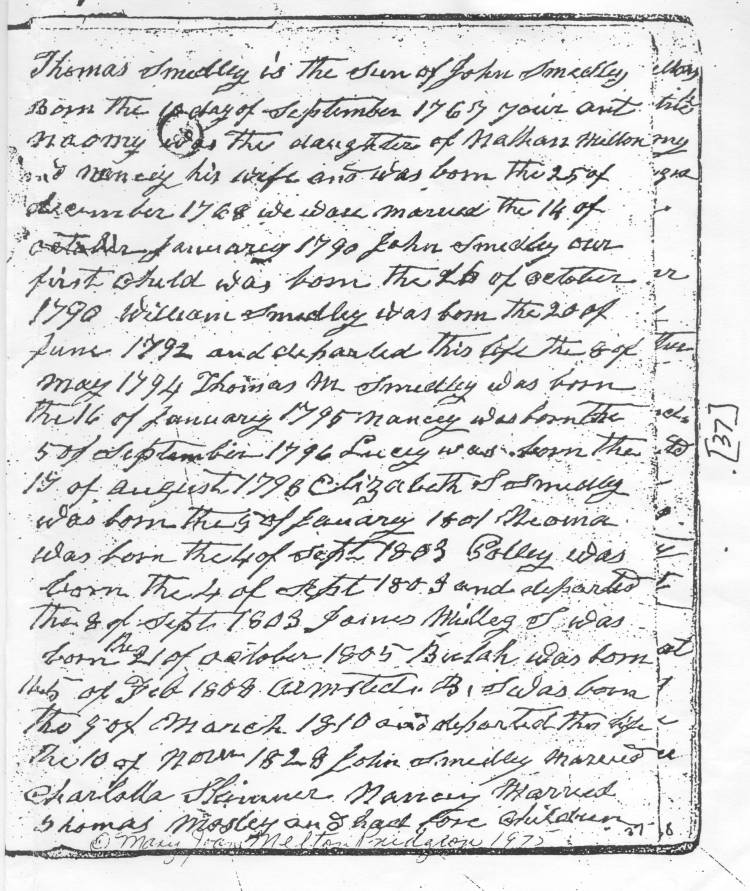 Thomas Smedley is the Sun of John Smedley
Born the 10 day of September 1767 your ant
naomy was the daughter of Nathan Milton
and nancey his wife and was born the 25 of
december 1768 we ware marved the 14 of
october Januarey 1790 John Smedley our
first Child was born the 26 of october
1790 William Smedley was born the 20 of
June 1792 and departed this life the 8 of
may 1794 Thomas M Smedley was born
the 16 of Januarey 1795 nancey was born the
5 of September 1796 Lucey was born the
17 of august 1798 Elizabeth S Smedley
was born the 5 of Januarey 1801 Neoma
was born the 4 of Sept 1803 Polley was
born the 4 of Sept 1803 and departed
the 8 of Sept 1803 James S was
born the 21 of october 1805 Bulah was born
the 5 of Feb 1808 armsted B. S was born
the 9 of March 1810 and departed this life
the 10 of novr 1828 John Smedley Marved
Charlotta Skinner Nancey Marved
Thomas Mosley and had fore children
© Mary Joan Melton 1975
[37]